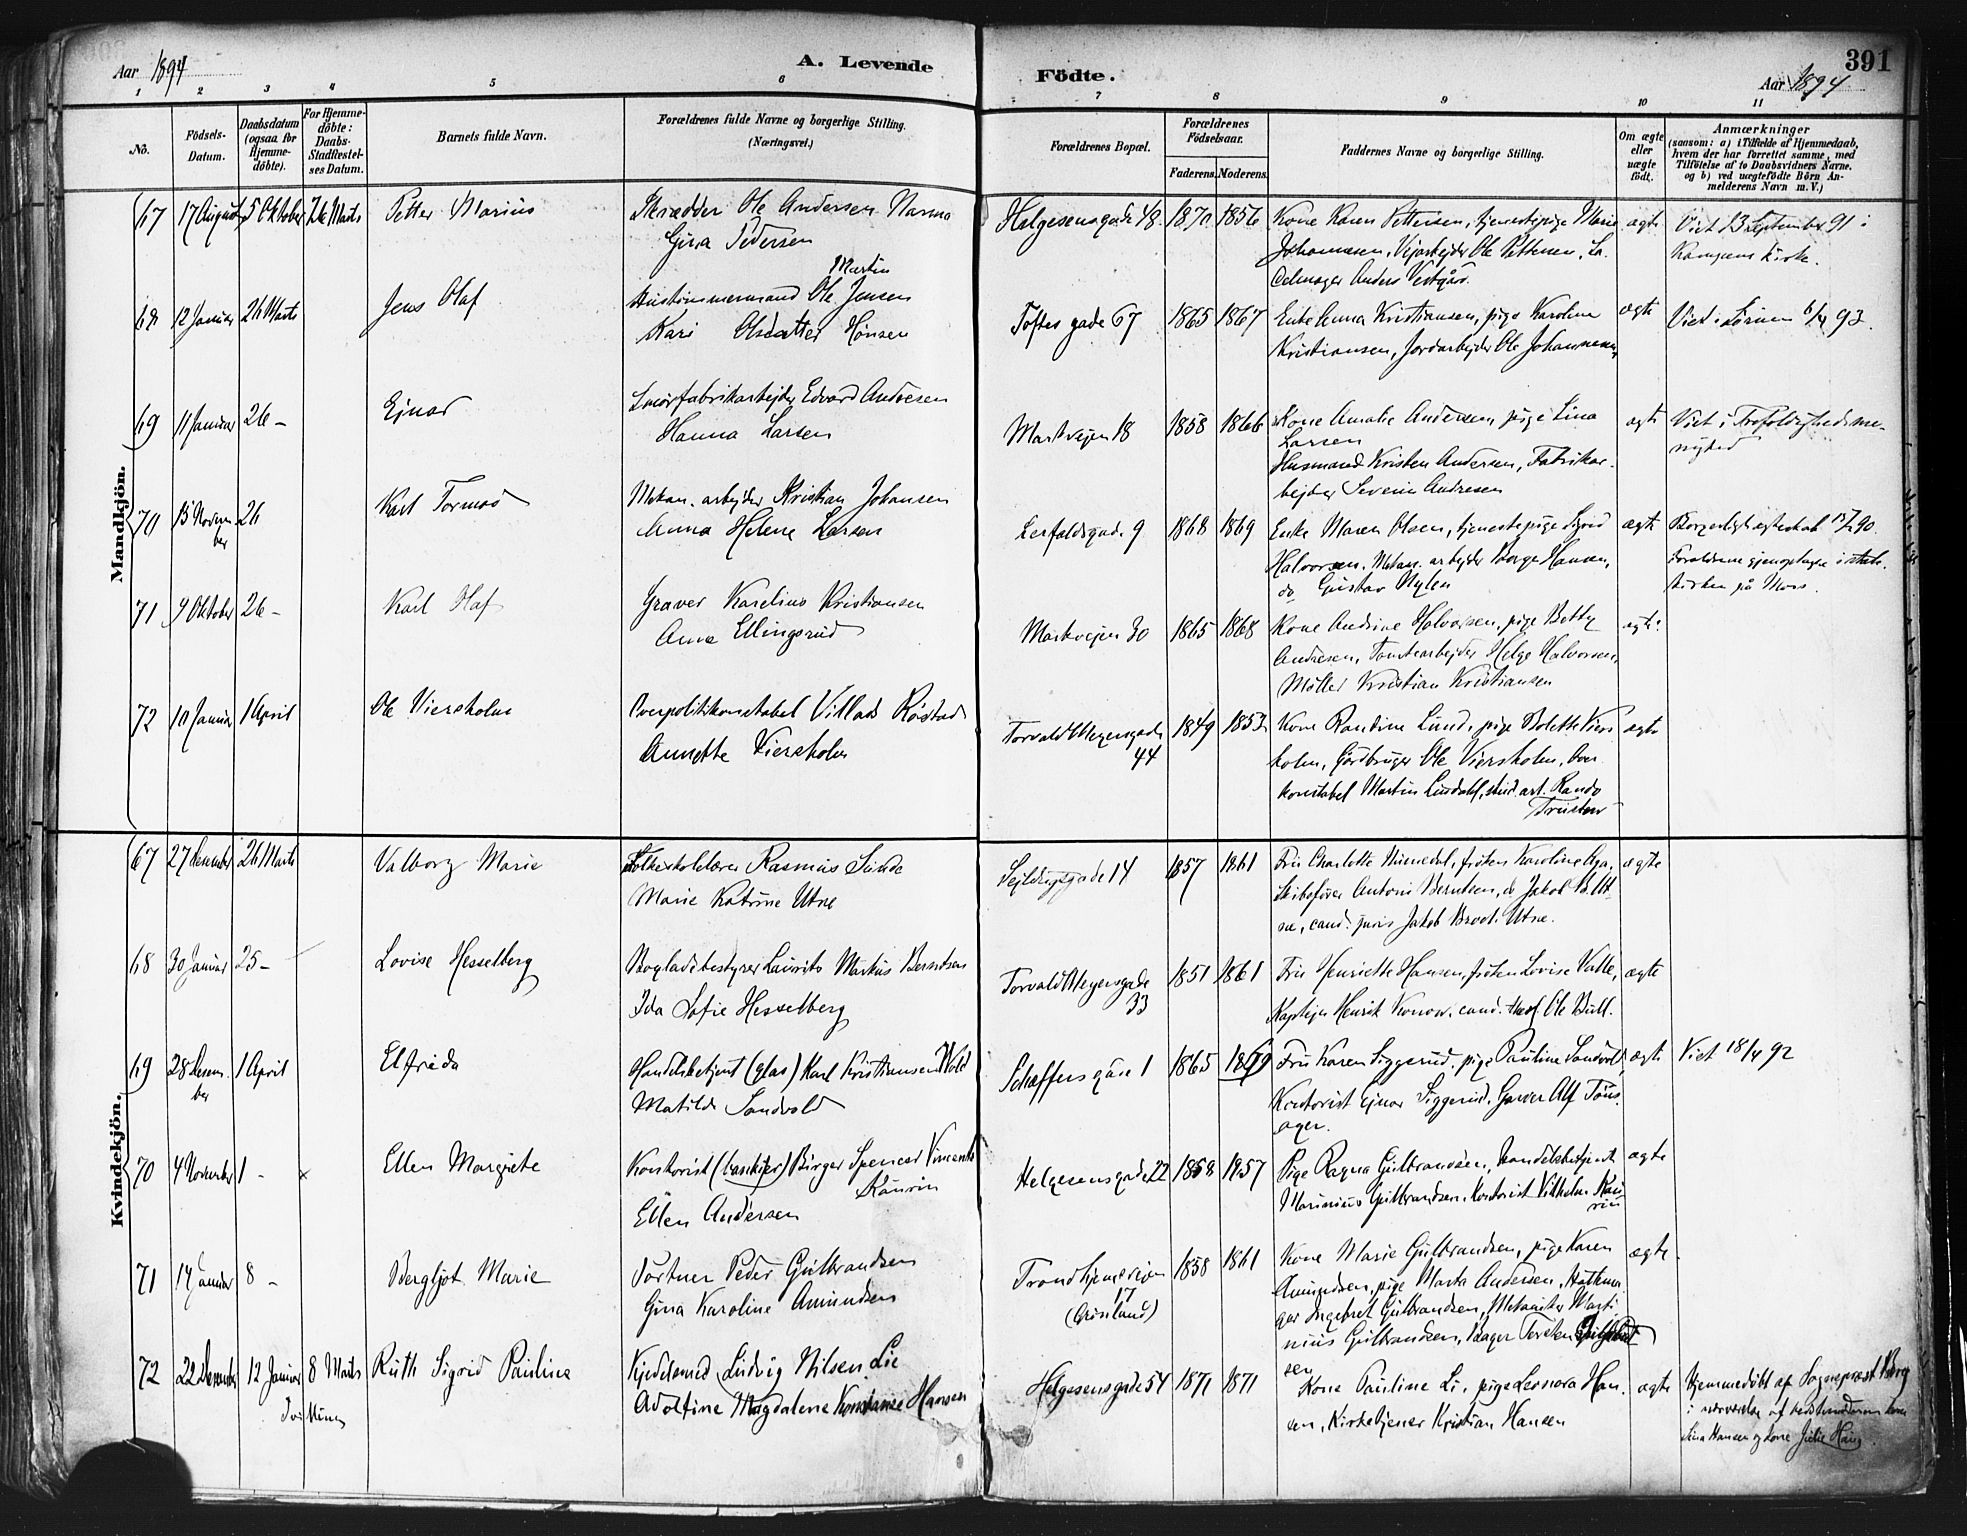 Aar 1894
A. Levende
Födte.
391
Aar 1894
1 2 3 4 5 6 7 8 9 10 11
No.
Födsels-Datum.
Daabsdatum (ogsaa for Hjemme-döbte).
For Hjemme-döbte: Daabs-Stadfæstel-ses Datum.
Barnets fulde Navn.
Forældrenes fulde Navne og borgerlige Stilling. (Næringsvei.)
Forældrenes Bopæl.
Forældrenes Födselsaar.
Faderens. Moderens.
Faddernes Navne og borgerlige Stilling.
Om ægte eller uægte födt.
Anmærkninger
(saasom: a) i Tilfælde af Hjemmedaab,
hvem der har forrettet samme, med
Tilföielse af to Daabsvidners Navne.
og b) ved uægtefödte Börn An-
melderens Navn m. V.)
Mandkjön.
67 17 August 5 Oktober 26 Marts Petter Marius
Skrædder Ole Andersen
Gina Pedersen
Helgesensgade 48. 1870 1856
Kone Karen Pettersen, tjenestepige Marie
Johannesen, Vejarbejder Ole Pettersen,
Anders Vestgård.
ægte
Viet 13 September 91 i
kirke.
68 12 Januar 26 Marts Jens Olaf
Martin
Hustømmermand Ole Jensen
Kari Olsdatter Hønsen
Toftes gade 67 1865 1867
Enke Anna Kristiansen, pige Karoline
Kristiansen, Jordarbejder Ole Johannesen,
ægte
69 11 Januar 26 - Ejnar
Edvard Andresen
Hanna Larsen
Markvejen 18 1858 1866
Kone Amalie Andersen, pige Lina
Larsen
Husmand Kristen Andersen, Fabrikar-
bejder Severin Andresen
ægte
Viet i Trefoldighedsme-
nighed
70 13 Novem-
ber 26 Karl Tormod
Mekan. arbejder Kristian Johansen
Anna Helene Larsen
Lerfaldsgade 9 1868 1869
Enke Maren Olsen, tjenestepige Sigrid
Halvorsen. Mekan. arbejder Børge Hansen,
do Gustav Nylen
ægte
Borgerligt ægteskab
71 9 Oktober 26 - Karl Olaf
Graver Karelius Kristiansen
Anna Ellingsrud
Markvejen 30 1865 1868
Kone Andrine Halvorsen, pige Betty
Andresen, Tomtearbejder Helge Halvorsen,
Møller Kristian Kristiansen
ægte
72 10 Januar 1 April Ole Viersholm
Overpolitikonstabel Villads Røstad
Annette Viersholm
Torvald Meyersgade
44
1849 1853
Kone Randine Lund, pige Bolette Viers-
holm, Gårdbruger Ole Viersholm, Over-
konstabel Martin Lindahl, stud. art.
ægte
Kvindekjön.
67 27 December 26 Marts Valborg Marie
Folkeskolelærer Rasmus Sunde
Marie Katrine Utne
Sejldugsgade 14 1857 1861
Fru Charlotte
Skibsfører Antoni Berntsen, do Jakob B. Ut-
ne, cand. juris Jakob Utne.
ægte
68 30 Januar 25 - Lovise Hesselberg
Bogladebestyrer Laurits Markus Berntsen
Ida Sofie Hesselberg
Torvald Meyersgade
33
1851 1861
Fru Henriette Hansen, frøken Lovise Valle,
Kaptejn Henrik Konow, cand. theol. Ole Bull.
ægte
69 28 Decem-
ber 1 April Elfrida
Handelsbetjent (glas) Karl Kristiansen Wold
Matilde Sandvold
Schæffersgade 1 1865 1869
Fru Karen Siggerud, pige Pauline Sandvold,
Kontorist Ejnar Siggerud, Garver Alf Tøns-
ager.
ægte
Viet 18/4 92
70 4 November 1 - × Ellen Margrete
Kontorist (baskier) Birger Spencer Vincents
Kaurin
Ellen Andersen
Helgesensgade 22 1858 1857
Pige Ragna Gulbrandsen, Handelsbetjent
Marinius Gulbrandsen, Kontorist Vilhelm Kau-
rin
ægte
71 14 Januar 8 - Bergljot Marie
Portner Peder Gulbrandsen
Gina Karoline Amundsen
Trondhjemsvejen
17
(Grünland)
1858 1861
Kone Marie Gulbrandsen, pige Karen
Amundsen, pige Marta Andersen,
Ingebret Gulbrandsen, Mekaniker Marti-
nius Gulbrandsen, Bager Torsten
sen
ægte
72 22 December 12 Januar 8 Marts Ruth Sigrid Pauline
Kjedelsmed Ludvig Nilsen Lie
Adolfine Magdalene Konstanse Hansen
Helgesensgade 54 1871 1871
Kone Pauline Li, pige Leonora Han-
sen, Kirketjener Kristian Hansen
ægte
Hjemmedøbt af Sogneprest Borg
i nærværelse af bedstemoderen kone
Lina Hansen og kone Julie Haug.